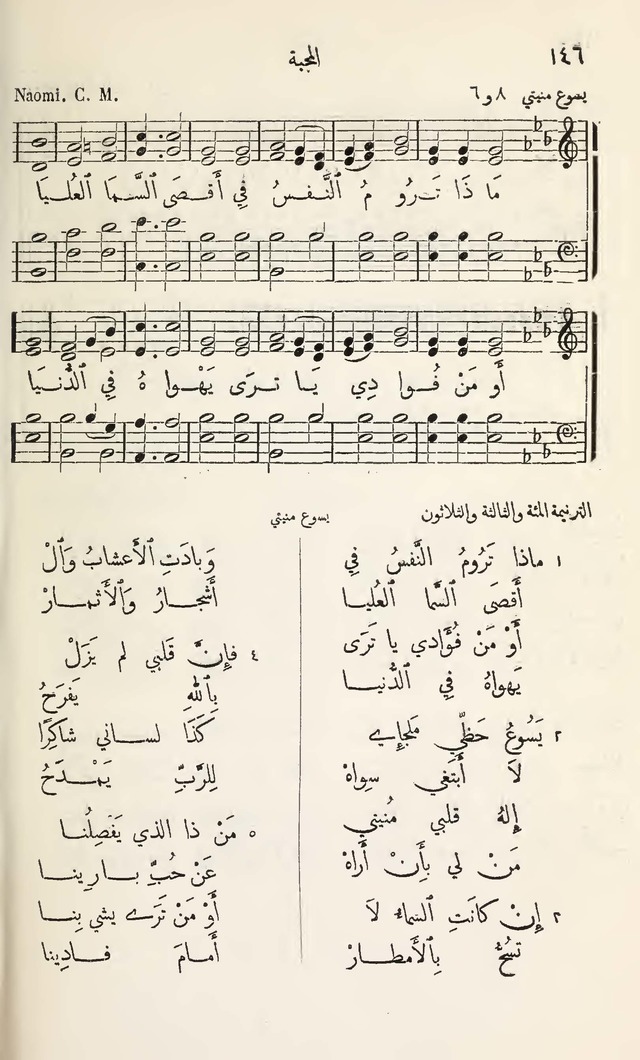 ١٤٦
المحبة
يسوع منيتي ٨ و ٦
Naomi. C. M.
مَا ذَا تَـرُو مُ ٱلنَّـفـسُ فِي أَقـصَى ٱلسَّـمَا ٱلعُلـيَا
أَو مَنْ فُـوا دِي يَـا تـرَى يَهْـوا هُ فِي ٱلدُّنـيَا
الترنيمة المئة والثالثة والثلاثون
يسوع منيتي
١ ماذا تَرُومُ ٱلنَّفسُ فِي
أَقصَى ٱلسَّما ٱلعُليـا
أَوْ مَنْ فُؤَادي يا تَرَى
يَهواهُ فِي ٱلدُّنيـا
٢ يَسُوعُ حَظِّي مَلجاءِي
لاَ أَبتَغي سِواهْ
إِلهُ قلبي مُنيتي
مَنْ لي بأَنْ أَراهْ
٢ إِنْ كانَتِ ٱلسَماءُ لاَ
تَسُحُّ بِٱلأَمطـارْ
وَبادَتِ ٱلأَعشابُ وَٱلْ
أَشجـارُ وَٱلأَثمـارْ
٤ فإِنَّ قَلبي لم يَزَلْ
بِٱللهِ يَفرَحُ
كَذَا لسـاني شاكِرًا
لِلرَّبِّ يَمْـدَحُ
٥ مَنْ ذا الذي يَفصِلُنـا
عَنْ حُبِّ بـارينـا
أَوْ مَنْ تَرَے يشي بِنـا
أَمامَ فـادِينا